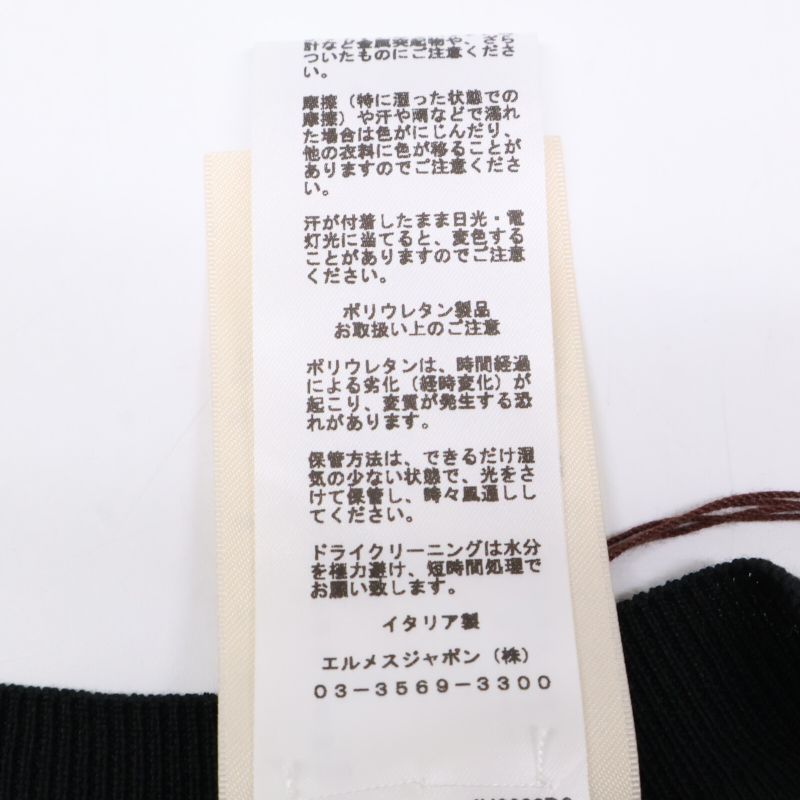 計など金属突起物や、ざら
ついたものにご注意くださ
い。
摩擦（特に湿った状態での
摩擦）や汗や雨などで濡れ
た場合は色がにじんだり、
他の衣料に色が移ることが
ありますのでご注意くださ
い。
汗が付着したまま日光・電
灯光に当てると、変色する
ことがありますのでご注意
ください。
ポリウレタン製品
お取扱い上のご注意
ポリウレタンは、時間経過
による劣化（経時変化）が
起こり、変質が発生する恐
れがあります。
保管方法は、できるだけ湿
気の少ない状態で、光をさ
けて保管し、時々風通しし
てください。
ドライクリーニングは水分
を極力避け、短時間処理で
お願い致します。
イタリア製
エルメスジャポン（株）
０３−３５６９−３３００